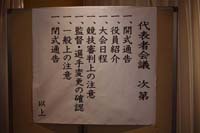 代表者会議 次第
一、開式通告
一、役員紹介
一、大会日程
一、競技審判上の注意
一、監督・選手変更の確認
一、一般上の注意
一、閉式通告
以上